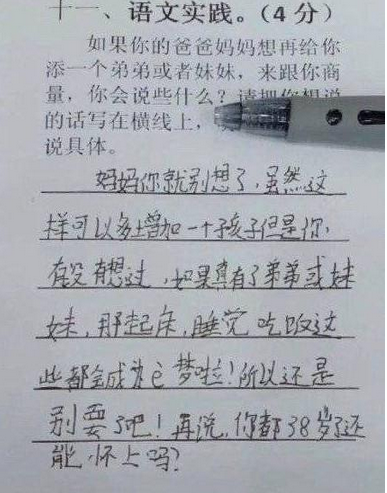 十一、语文实践。(4分)
如果你的爸爸妈妈想再给你
添一个弟弟或者妹妹，来跟你商
量，你会说些什么？请把你想说
的话写在横线上，
说具体。
妈妈你就别想了，虽然这
样可以多增加一个孩子但是你，
有没有想过，如果真有了弟弟或妹
妹，那起床，睡觉吃饭这
些都会成为它梦啦！所以还是
别要了吧！再说，你都38岁了还
能怀上吗？